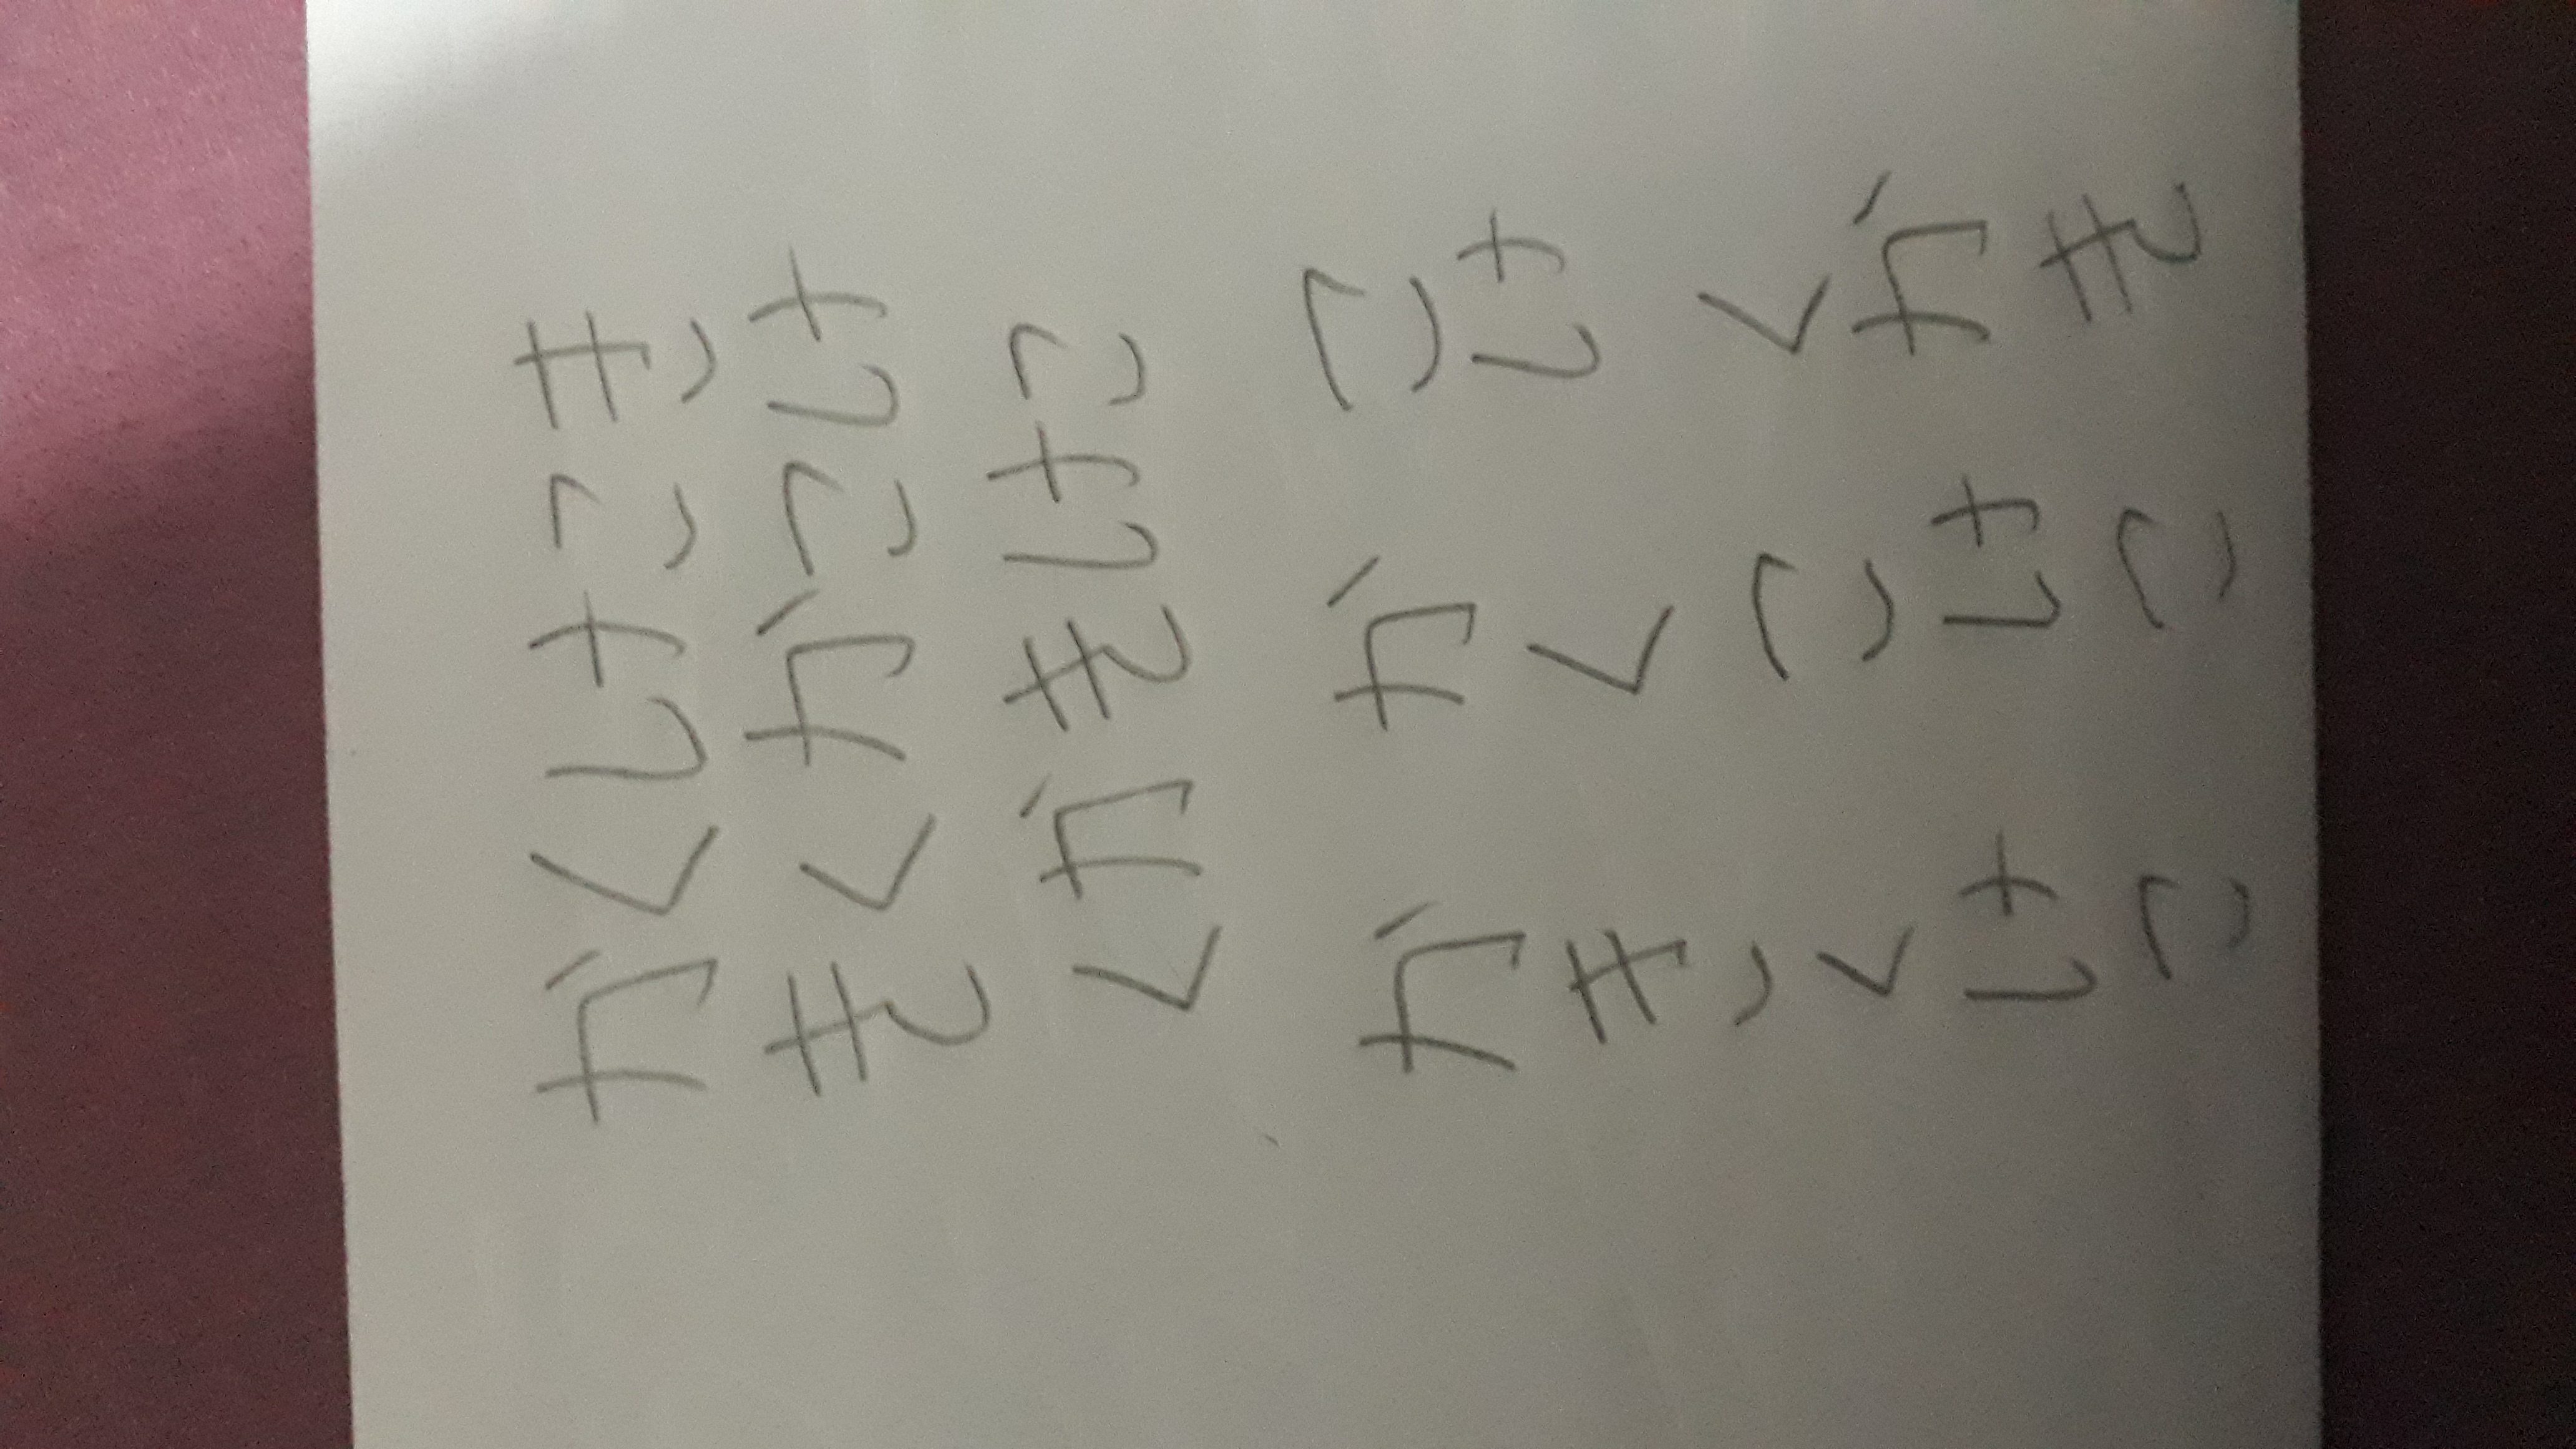 かくけこき
きくかこけ
くかきけこ
こけくかき
かくこけこ
かきくけこ